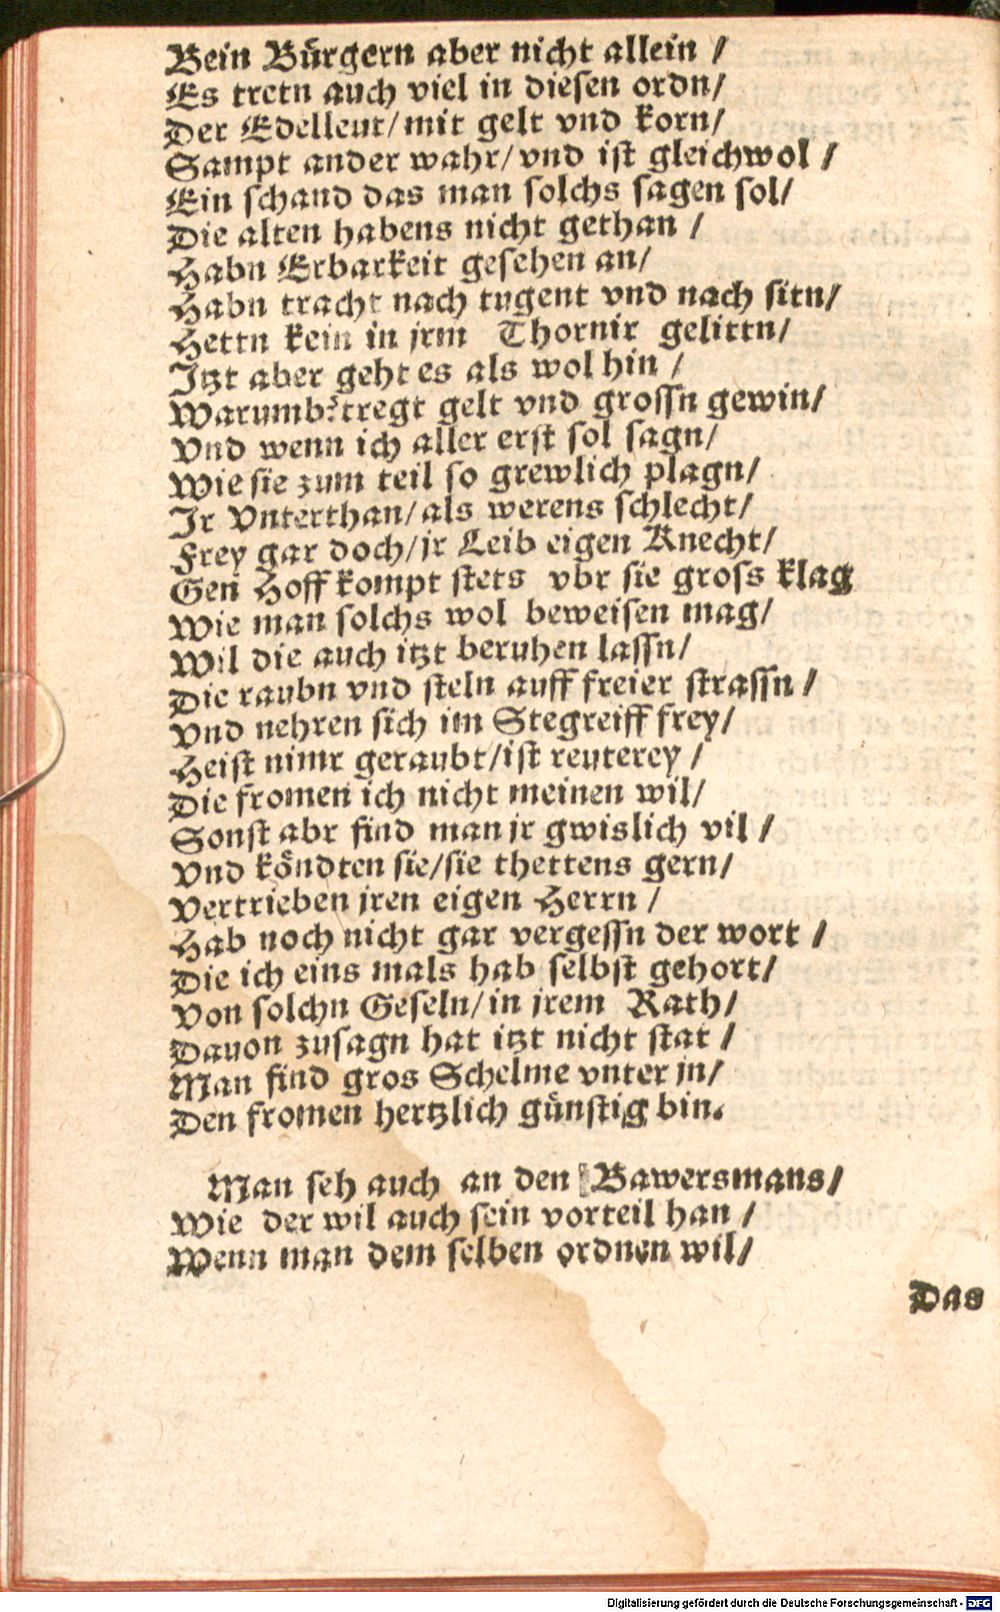 Bein Bürgern aber nicht allein /
Es tretn auch viel in diesen ordn/
Der Edelleut/mit gelt vnd korn/
Sampt ander wahr/vnd ist gleichwol /
Ein schand das man solchs sagen sol/
Die alten habens nicht gethan /
Habn Erbarkeit gesehen an/
Habn tracht nach tugent vnd nach sitn/
Hettn kein in jrm Thornir gelittn/
Itzt aber geht es als wol hin /
Warumb?tregt gelt vnd grossn gewin/
Vnd wenn ich aller erst sol sagn/
Wie sie zum teil so grewlich plagn/
Ir Vnterthan/als werens schlecht/
Frey gar doch/jr Leib eigen Knecht/
Gen Hoff kompt stets vbr sie gross klag
Wie man solchs wol beweisen mag/
Wil die auch itzt beruhen lassn/
Die raubn vnd steln auff freier strassn /
Vnd nehren sich im Stegreiff frey/
Heist nimr geraubt/ist reuterey /
Die fromen ich nicht meinen wil/
Sonst abr find man jr gwislich vil /
Vnd köndten sie/sie thettens gern/
Vertrieben jren eigen Herrn /
Hab noch nicht gar vergessn der wort /
Die ich eins mals hab selbst gehort/
Von solchn Geseln/in jrem Rath/
Dauon zusagn hat itzt nicht stat /
Man find gros Schelme vnter jn/
Den fromen hertzlich günstig bin.
Man seh auch an den Bawersmans/
Wie der wil auch sein vorteil han /
Wenn man dem selben ordnen wil/
Das
Digitalisierung gefördert durch die Deutsche Forschungsgemeinschaft - DFG